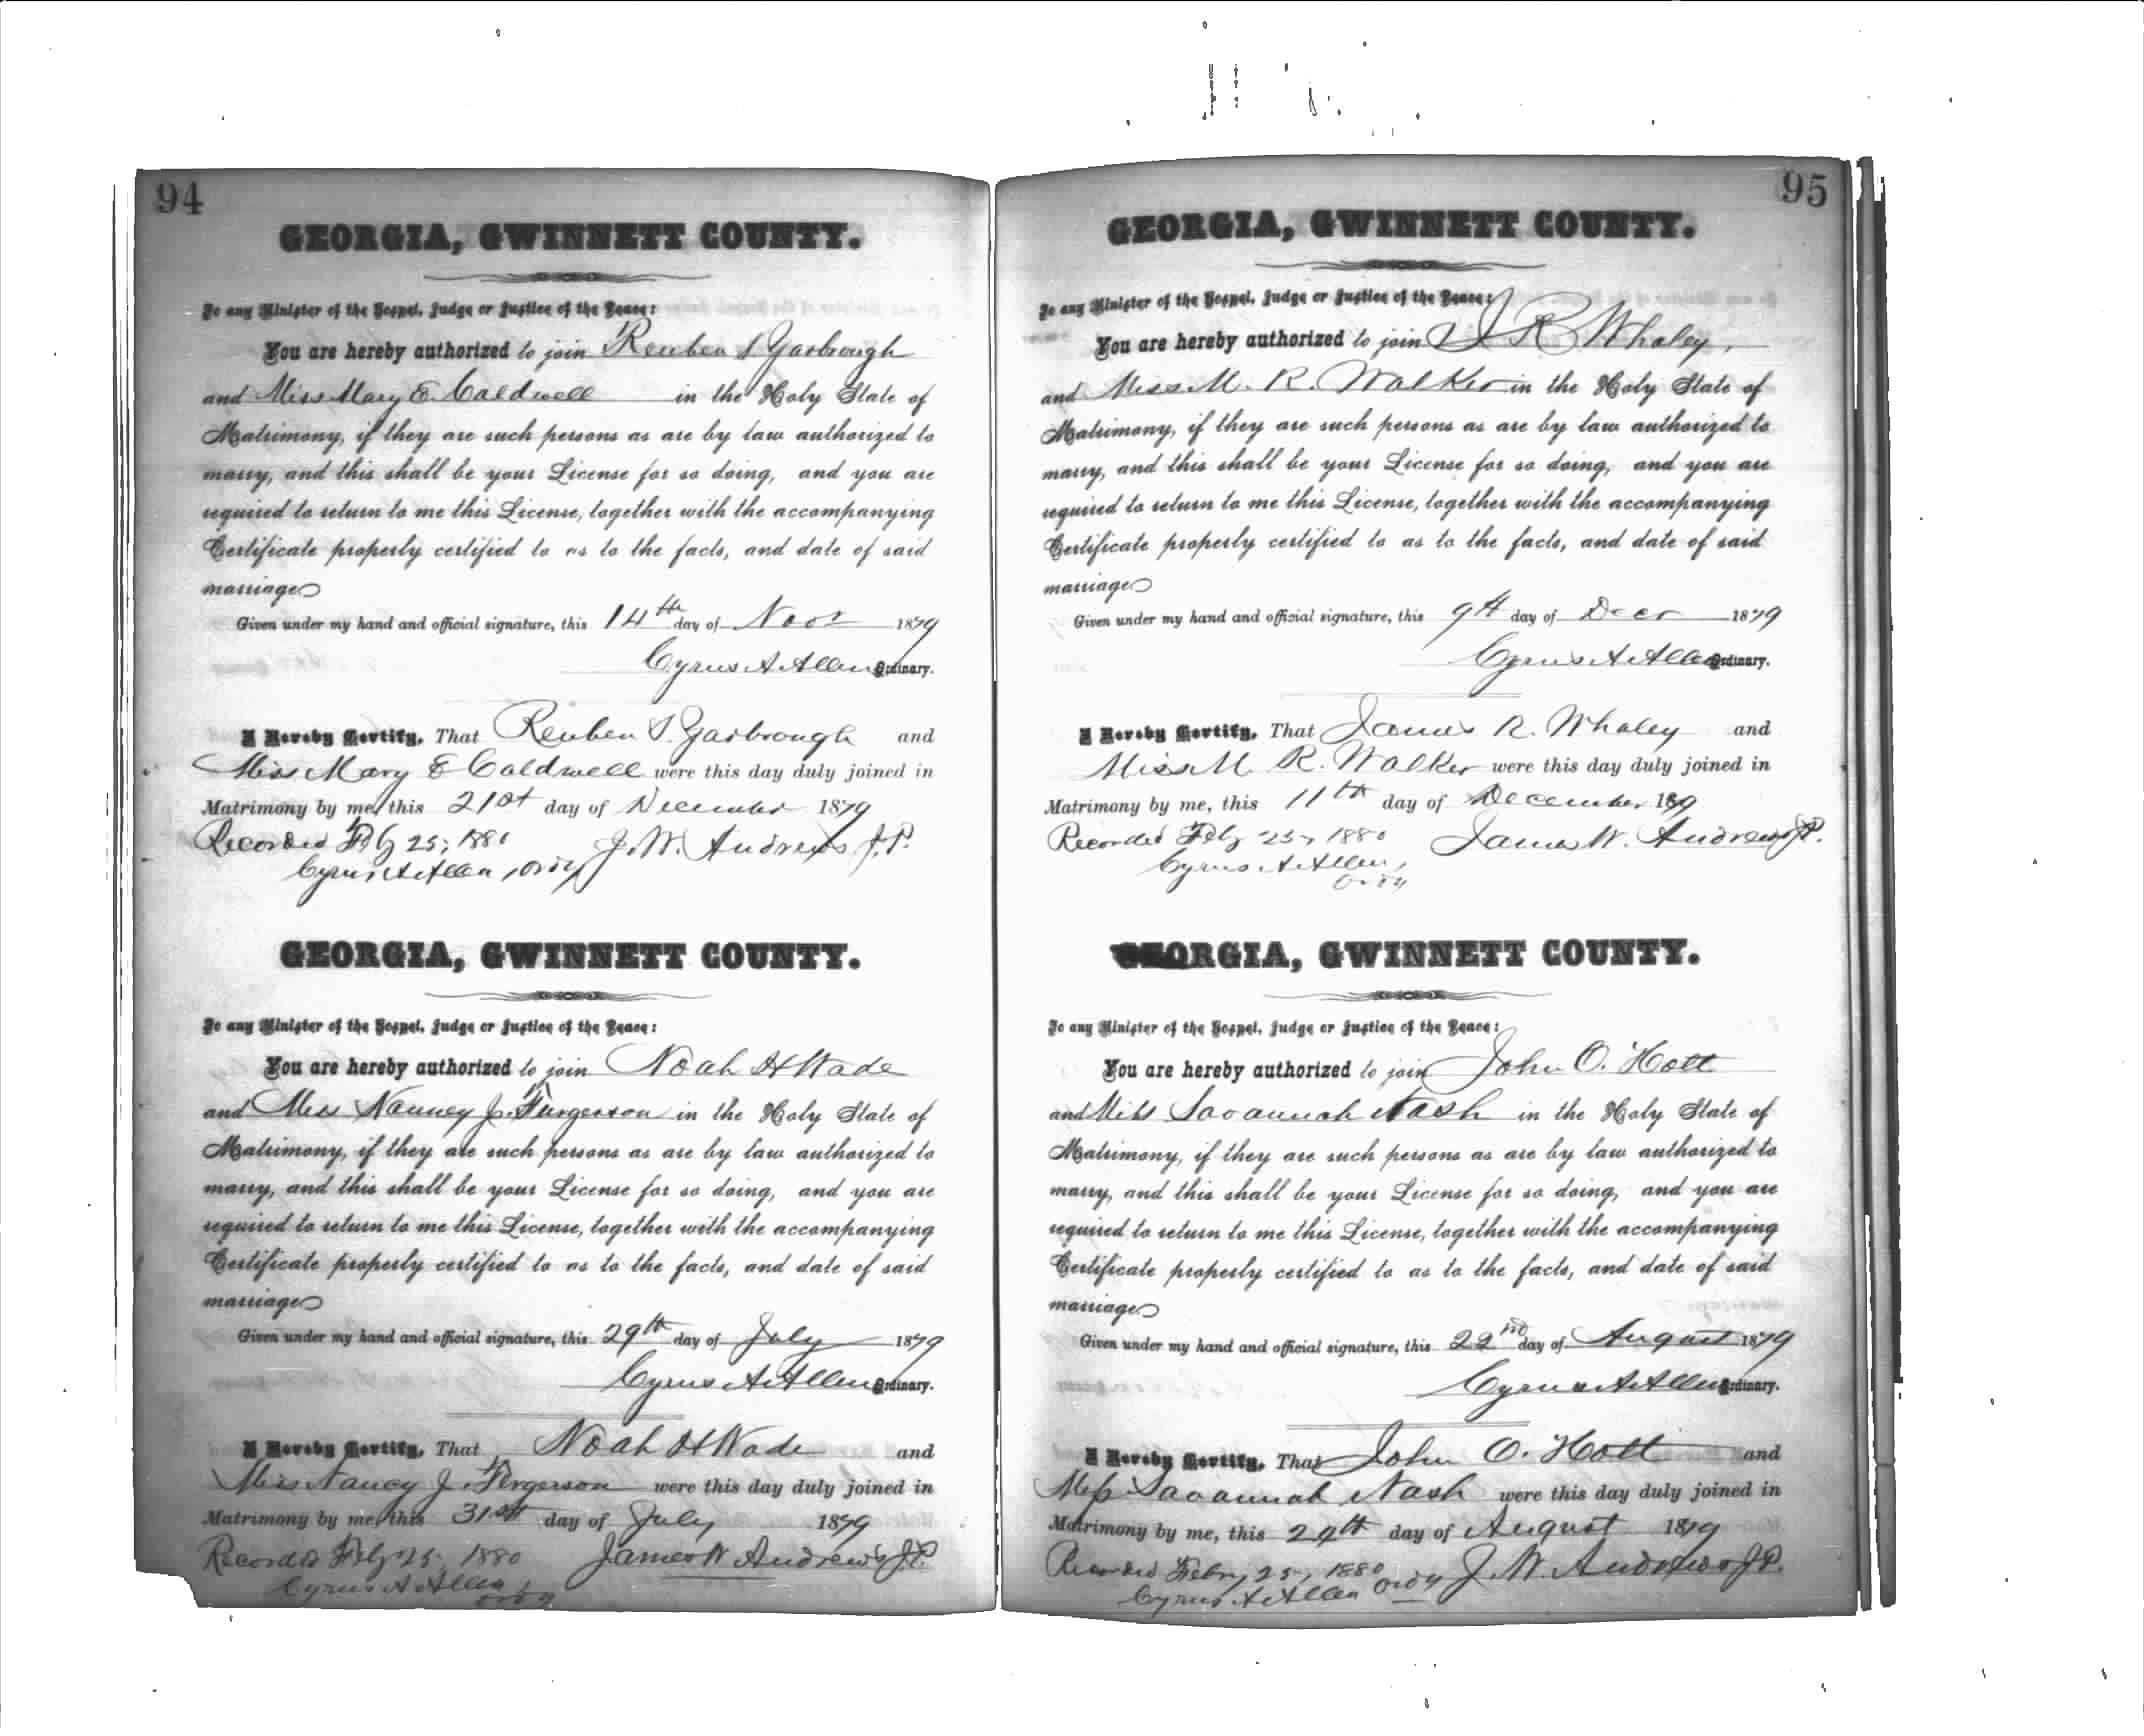 94
GEORGIA, GWINNETT COUNTY.
To any Minister of the Gospel, Judge or Justice of the Peace:
You are hereby authorized to join Reuben S Yarbrough
and Miss Mary E. Caldwell in the Holy State of
Matrimony, if they are such persons as are by law authorized to
marry, and this shall be your License for so doing, and you are
required to return to me this License, together with the accompanying
Certificate properly certified to as to the facts, and date of said
marriage
Given under my hand and official signature, this 14th day of Novr 1879
Cyrus A. Allen Ordinary.
I Hereby Certify, That Reuben S. Yarbrough and
Miss Mary E Caldwell were this day duly joined in
Matrimony by me, this 21st day of December 1879
Recorded Feby 25, 1880 J. W. Andrews J.P.
Cyrus A. Allen, Ordy
GEORGIA, GWINNETT COUNTY.
To any Minister of the Gospel, Judge or Justice of the Peace:
You are hereby authorized to join Noah H Wade
and Miss Nanney J. Furgerson in the Holy State of
Matrimony, if they are such persons as are by law authorized to
marry, and this shall be your License for so doing, and you are
required to return to me this License, together with the accompanying
Certificate properly certified to as to the facts, and date of said
marriage
Given under my hand and official signature, this 29th day of July 1879
Cyrus A. Allen Ordinary.
I Hereby Certify, That Noah H Wade and
Miss Nancy J. Firgerson were this day duly joined in
Matrimony by me, this 31st day of July 1879
Recorded Feby 25, 1880 James W Andrews J.P.
Cyrus A Allen Ordy
95
GEORGIA, GWINNETT COUNTY.
To any Minister of the Gospel, Judge or Justice of the Peace:
You are hereby authorized to join J R Whaley,
and Miss M. R. Walker in the Holy State of
Matrimony, if they are such persons as are by law authorized to
marry, and this shall be your License for so doing, and you are
required to return to me this License, together with the accompanying
Certificate properly certified to as to the facts, and date of said
marriage
Given under my hand and official signature, this 9th day of Decr 1879
Cyrus A. Allen Ordinary.
I Hereby Certify, That James R. Whaley and
Miss M. R. Walker were this day duly joined in
Matrimony by me, this 11th day of December 1879
Recorded Feby 25, 1880 James W. Andrews J.P.
Cyrus A. Allen,
Ordy
GEORGIA, GWINNETT COUNTY.
To any Minister of the Gospel, Judge or Justice of the Peace:
You are hereby authorized to join John O. Holt
and Miss Savannah Nash in the Holy State of
Matrimony, if they are such persons as are by law authorized to
marry, and this shall be your License for so doing, and you are
required to return to me this License, together with the accompanying
Certificate properly certified to as to the facts, and date of said
marriage
Given under my hand and official signature, this 22nd day of August 1879
Cyrus A. Allen Ordinary.
I Hereby Certify, That John O. Holt and
Miss Savannah Nash were this day duly joined in
Matrimony by me, this 24th day of August 1879
Recorded Feby 25, 1880 J. W. Andrews J.P.
Cyrus A. Allen Ordy